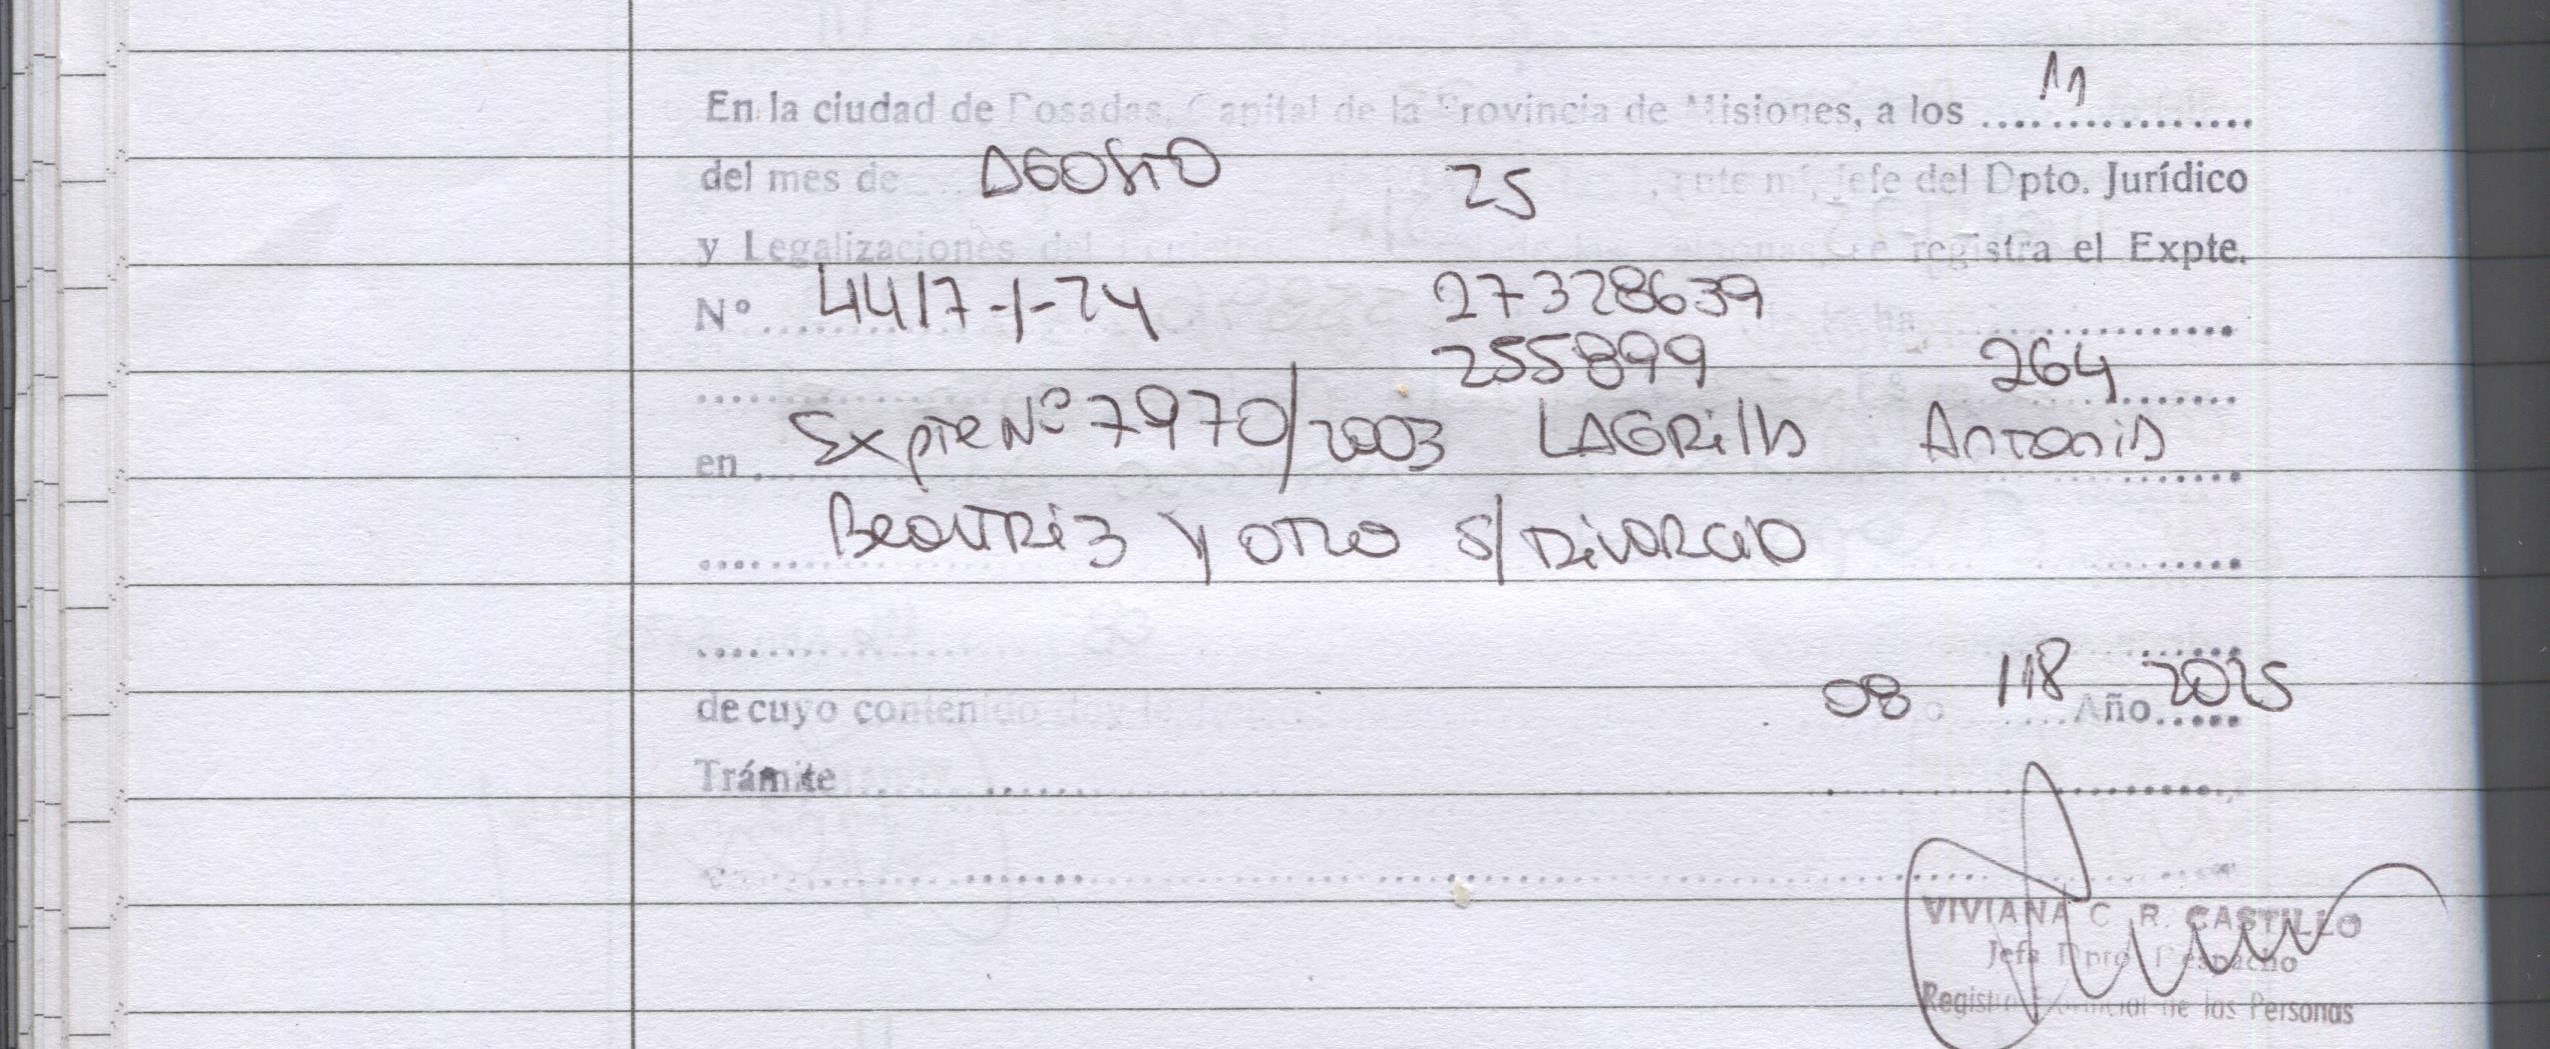 En la ciudad de Posadas, Capital de la Provincia de Misiones, a los 11
del mes de AGOSTO 25, ante mí, Jefe del Dpto. Jurídico
y Legalizaciones del de las Personas, se registra el Expte.
Nº 4417-1-24 27328639
255899 264
en Expte Nº 7970/2003 LAGRilla Antonia
BeatRiz y otro s/ DivoRcio
de cuyo contenido doy fe 08 118 Año 2025
Trámite
VIVIANA C. R. CASTILLO
Jefa Dpto. Despacho
Registro Provincial de las Personas